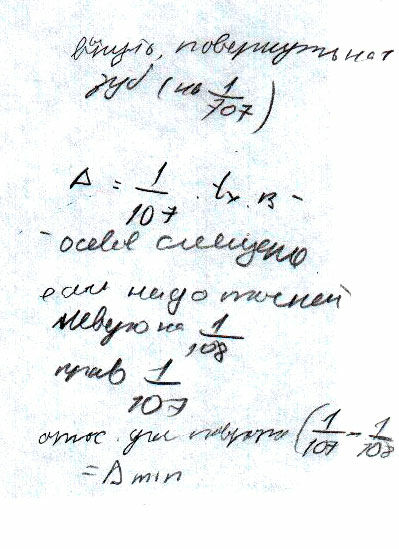 вынуть, повернуть на 1
зуб (на 1/107)
Δ = 1/107 · tх.в -
- осевое смещение
если надо точней
левую на 1/108
прав 1/107
относ. угл поворота (1/107 - 1/108
= Δ min